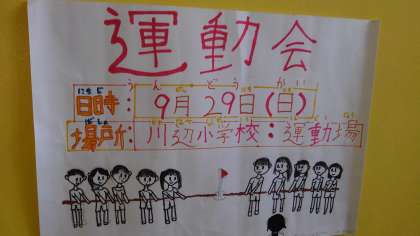 運動会
うんどうかい
にちじ
日時: 9月29日(日)
ばしょ
場所: 川辺小学校: 運動場